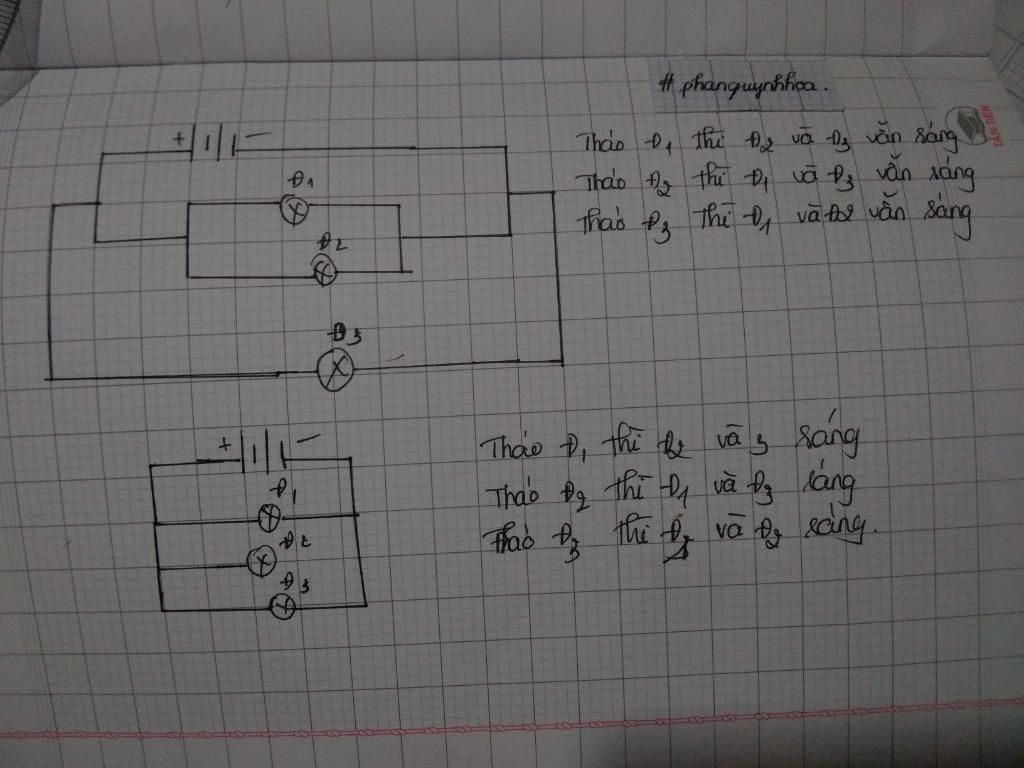 #phanquynhhoa.
TÂN TIẾN
Tháo Đ1 thì Đ2 và Đ3 vẫn sáng
Tháo Đ2 thì Đ1 và Đ3 vẫn sáng
Tháo Đ3 thì Đ1 và Đ2 vẫn sáng
+ –
Đ1
Đ2
Đ3
+ –
Đ1
Đ2
Đ3
Tháo Đ1 thì Đ2 và 3 sáng
Tháo Đ2 thì Đ1 và Đ3 sáng
Tháo Đ3 thì Đ1 và Đ2 sáng.